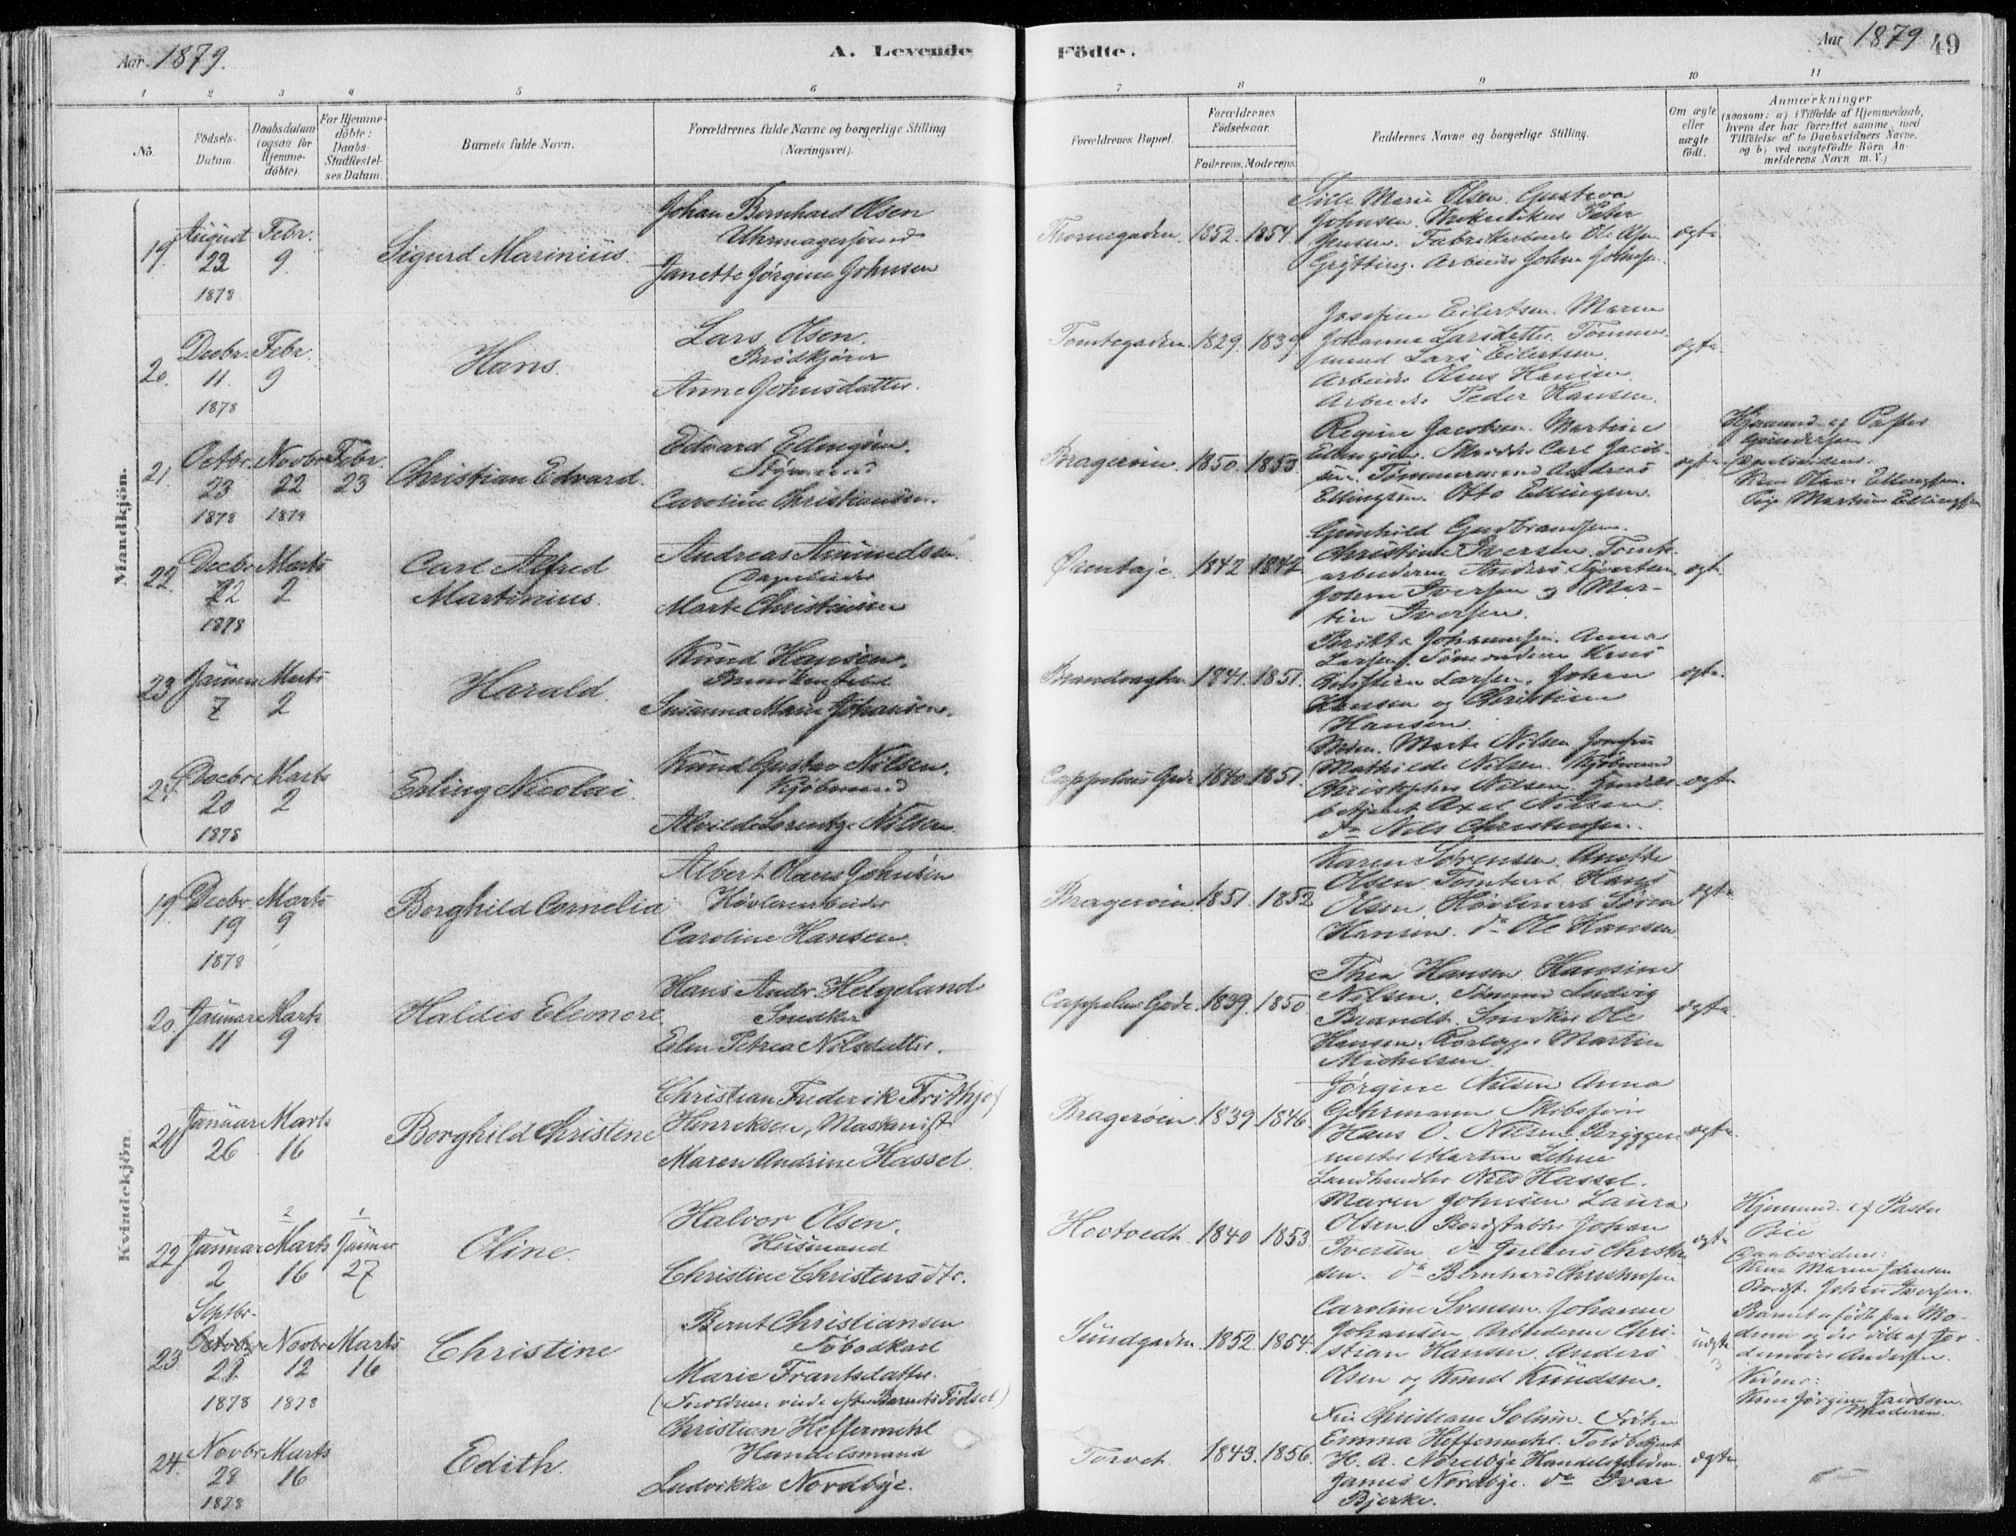 Aar 1879.
A. Levende
Födte.
Aar 1879
49
1 2 3 4 5 6 7 8 9 10 11
No.
Födsels-
Datum.
Daabsdatum
(ogsaa for
Hjemme-
döbte).
For Hjemme-
döbte:
Daabs-
Stadfæstel-
ses Datum.
Barnets fulde Navn.
Forældrenes fulde Navne og borgerlige Stilling
(Næringsvei).
Forældrenes Bopæl.
Forældrenes
Födselsaar.
Faderens. Moderens.
Faddernes Navne og borgerlige Stilling.
Om ægte
eller
uægte
födt.
Anmærkninger
(saasom: a) i Tilfælde af Hjemmedaab,
hvem der har forrettet samme, med
Tilföielse af to Daabsvidners Navne,
og b) ved uægtefödte Börn An-
melderens Navn m. V.)
Mandkjön.
19.
August
23
1878
Febr.
9.
Sigurd Marinius.
Johan Bernhard Olsen
Uhrmagersvend
Janette Jørgine Johnsen
Thornegaden. 1852. 1854.
Marie Olsen. Gustava
Johnsen. Peter
Jensen.
Grytting. Arbeider Johan
ægte
20.
Decbr.
11.
1878
Febr.
9
Hans.
Lars Olsen.
Brødkjører
Anne Johnsdatter.
Tomtegaden. 1829. 1839
Josefine Eilertsen. Maren
Johanne Larsdatter. Tømmer-
mand Lars Eilertsen.
Arbeider Olaus Hansen.
Arbeider Peder Hansen.
ægte
21.
Octbr.
23
1878
Novbr.
22
1879
Febr.
23
Christian Edvard.
Edvard Ellingsen.
Styrmand
Caroline Christiansen.
Bragerøen. 1850. 1853.
Regine Jacobsen. Martine
Ellingsen. Skrædder Carl Jacob-
sen. Tømmermand Andreas
Ellingsen. Otto Ellingsen.
ægte
Hjemmed. af Pastor
Gundersen.
Daabsvidner:
Ellingsen.
Pige Martine Ellingsen
22.
Decbr.
22
1878
Marts
2
Carl Alfred
Martinius.
Andreas Amundsen.
Dagarbeider
Marte Christiansen
1842 1847
Gunhild Gudbrandsen.
Christine Iversen. Tomte-
arbeiderne Anders Syvertsen
Johan Iversen og Mar-
tin Iversen.
ægte
23
Januar
7
Marts
2
Harald.
Knud Hansen.
Susanna Marie Johansen.
Brandvagten. 1841. 1851.
Johannesen. Anna
Larsen. Sømændene
Christian Larsen. Johan
Hansen og Christian
Hansen.
ægte
24.
Decbr.
20
1878
Marts
2
Erling Nicolai.
Knud Gustav Nilsen.
Kjøbmand
Alvilde Lorentze Nilsen.
Cappelens Gade 1840. 1851.
Marte Nilsen
Mathilde Nilsen. Kjøbmand
Christopher Nilsen. Handels-
betjent Axel Nilsen.
do Nils Christensen.
ægte
Kvindekjön
19.
Decbr.
19
1878
Marts
9
Borghild Cornelia
Albert Olaus Johnsen
Høvleriarbeider
Caroline Hansen.
Bragerøen. 1851. 1852
Karen Sørensen. Anette
Olsen. Tomtearb. Hans
Olsen. Høvleriarb.
Hansen. do Ole Hansen
ægte
20.
Januar
11
Marts
9
Haldis Eleonore.
Hans Andr. Helgeland
Snedker
Elen Petrea Nilsdatter.
Cappelens Gade. 1839. 1850
Thea Hansen. Hansine
Nilsen. Sømand Ludvig
Brandt. Snedker Ole
Hansen. Martin
Michelsen.
ægte
21
Januar
26
Marts
16
Borghild Christine
Christian Frederik Frithjof
Henriksen, Maskinist
Maren Andrine Hassel.
Bragerøen 1839 1846
Jørgine Nilsen Anna
Gehrmann Skibsfører
Hans O. Nilsen. Brygger-
mester Martin
Landhandler Nils Hassel.
ægte
22
Januar
2
2
Marts
16
1
Januar
27
Oline.
Halvor Olsen.
Husmand
Christine Christensdtr.
Hovtvedt. 1840 1853
Maren Johnsen Laura
Olsen. Bordstabler Johan
Iversen. do Julius Christen-
sen. do Bernhard Christensen
ægte
Hjemmed. af Pastor
Bie
Daabsvidner:
Kone Maren Johnsen
Bordst. Johan Iversen.
23
Septbr.
Octobr.
28
1878
Novbr.
12
1878
Marts
16
Christine
Bernt Christiansen
Marie Frantsdatter.
(Forældrene viede efter Barnets Fødsel)
Sundgaden. 1852. 1854.
Caroline Svensen. Johanne
Johansen. Arbeiderne Chri-
stian Hansen. Anders
Olsen og Knud Knudsen.
uægte
Barnet er født paa Mo-
drum og der døbt af Jor-
demoder Andersen.
Vidner:
Kone Jørgine Jacobsen
Moderen.
24.
Novbr.
28
1878
Marts
16
Edith.
Christian Heffermehl
Handelsmand
Ludvikke Nordbye.
Torvet. 1843. 1856.
Fru Christiane Solum. Frøken
Emma Heffermehl. Toldbetjent
H. A. Nordbye. Handelsfuldm.
James Nordbye. do Ivar
Bjerke.
ægte